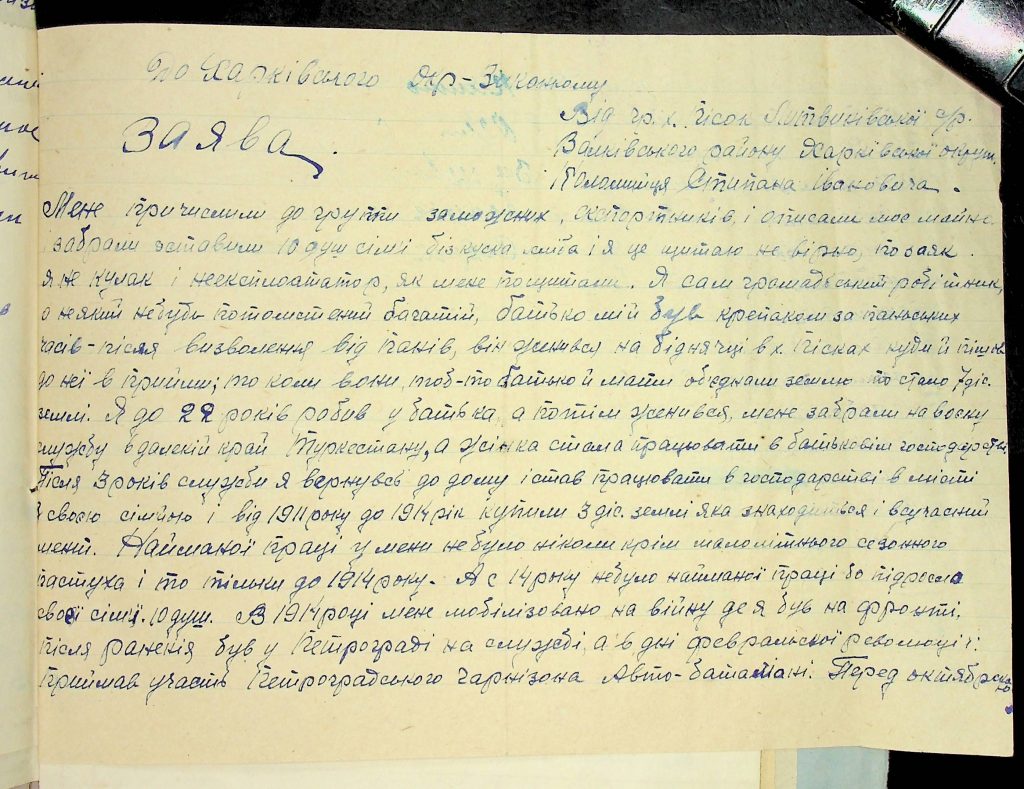 До Харківського Окр-Зиконкому
Від гр. х. Пісок Литвинівської с/р.
Валківського району Харківської округи
Коломийця Стипана Івановича.
Заява.
Мене причислили до групи заможних, експортників, і описали моє майно
забрали зставили 10 душ сімї без куска хліба і я це щитаю не вірно, по заяк
я не кулак і неексплоататор, як мене пощитали. Я сам громадський робітник,
а неякий небудь потомствений багатій, батько мій був крепаком за панських
часів - після визволення від панів, він женився на біднячці в х. Пісках куди й пішов
до неї в прийми; то коли вони, тоб-то батько й мати обєднали землю то стало 7 діс.
землі. Я до 22 років робив у батька, а потім женився, мене забрали на воєну
службу в далекій край Туркестану, а жінка стала працювати в батьковім господарстві
Після 3 років служби я вернувсь до дому і став працювати в господарстві в місті
з своєю сімйою і від 1911 року до 1914 рік купили 3 діс. землі яка знаходиться і всучасний
мент. Найманої праці у мени небуло ніколи крім малолітнього сезонного
пастуха і то тільки до 1914 року. А с 14 року небуло найманої праці бо підросло
своєї сімї. 10 душ. В 1914 році мене мобілізовано на війну де я був на фронті,
після раненія був у Петрограді на службі, а в дні февральської революції:
приймав участь Петроградського гарнізона Авто-баталіані. Перед октябрською